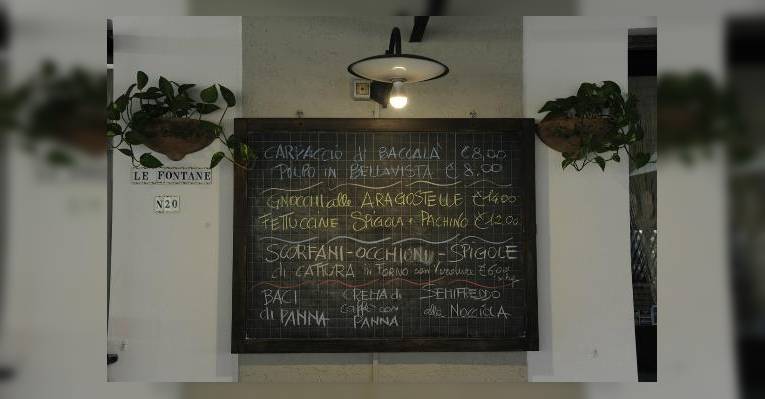 CARPACCIO di BACCALA' € 8,00
POLPO IN BELLAVISTA € 8,00
GNOCCHI alle ARAGOSTELLE € 14,00
FETTUCCINE SPIGOLA + PACHINO € 12,00
SCORFANI - OCCHIONI - SPIGOLE
di CATTURA in FORNO con Verdure € 6,00
BACI
di PANNA
CREMA di
caffè con
PANNA
SEMIFREDDO
alla NOCCIOLA
LE FONTANE
N20